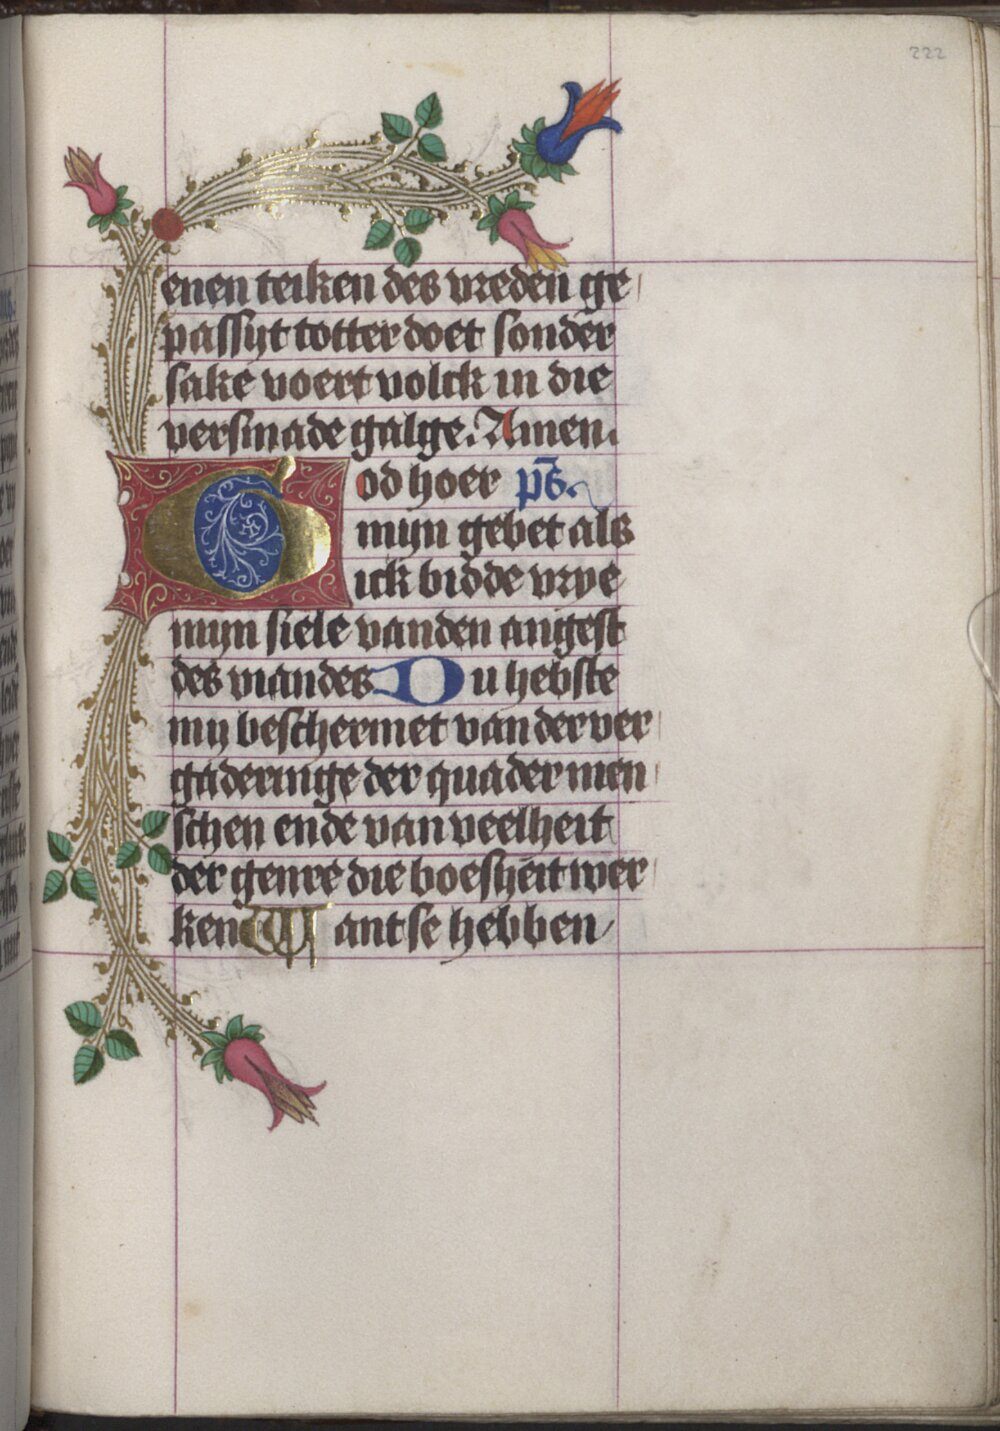 222
enen teiken des vreden ge
passyt totter doet sonder
sake voert volck in die
versmade galge. Amen.
God hoer ps.
myn gebet als
ick bidde vrye
myn siele vanden angest
des viandes Du hebste
my beschermet van der ver
gaderinge der quader men
schen ende van veelheit
der genre die boesheit wer
ken Want se hebben